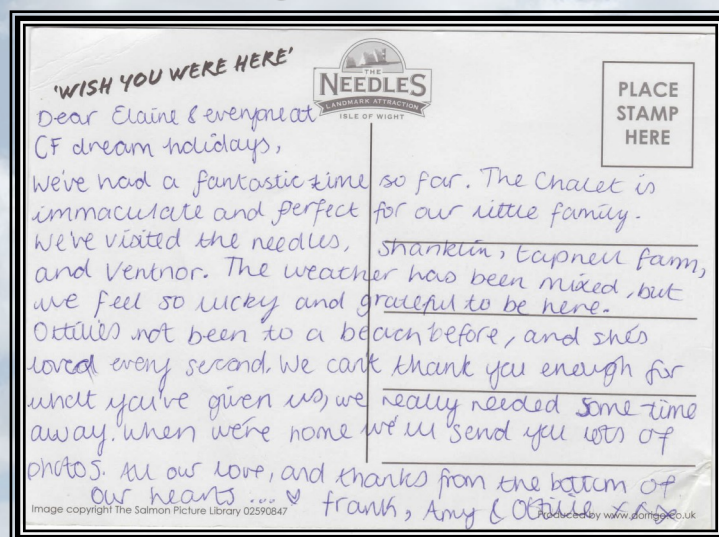 'WISH YOU WERE HERE'
THE
NEEDLES
LANDMARK ATTRACTION
ISLE OF WIGHT
PLACE
STAMP
HERE
Dear Elaine & everyone at
CF dream holidays,
We've had a fantastic time so far. The Chalet is
immaculate and perfect for our little family.
We've visited the needles, Shanklin, tapnell farm,
and Ventnor. The weather has been mixed, but
we feel so lucky and grateful to be here.
Ottilies not been to a beach before, and she's
loved every second. We can't thank you enough for
what you've given us, we really needed some time
away. When we're home we'll send you lots of
photos. All our love, and thanks from the bottom of
our hearts ... ♡ Frank, Amy & Ottilie
Image copyright The Salmon Picture Library 02590847
Produced by www.dorrigo.co.uk